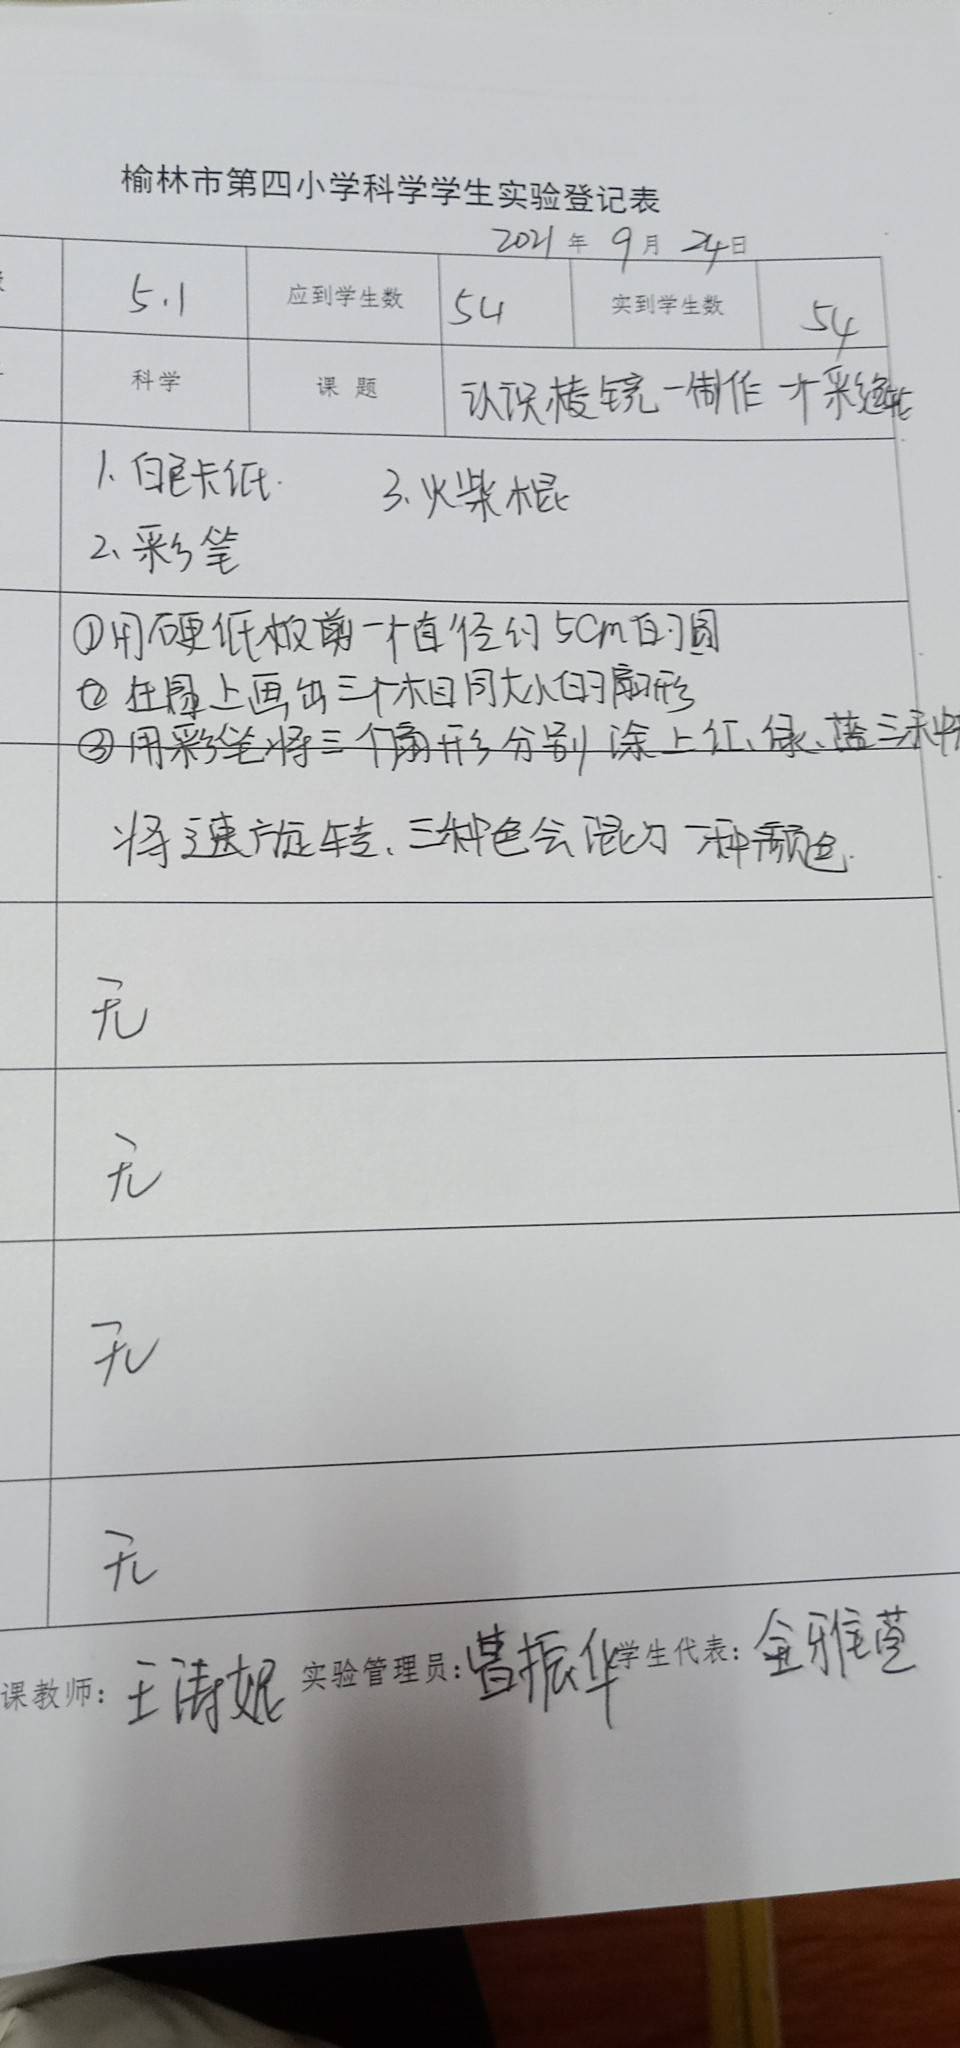 榆林市第四小学科学学生实验登记表
2021年 9月 24日
5.1 应到学生数 54 实到学生数 54
科学 课题 认识棱镜一制作一个彩色轮
1、白色卡纸. 3、火柴棍
2、彩笔
①用硬纸板剪一个直径约5cm的圆
② 在圆上画出三个相同大小的扇形
③用彩笔将三个扇形分别涂上红、绿、蓝三种
将速旋转、三种色会混为一种颜色.
无
无
无
无
课教师: 王涛妮 实验管理员: 曹振华 学生代表: 金雅萱